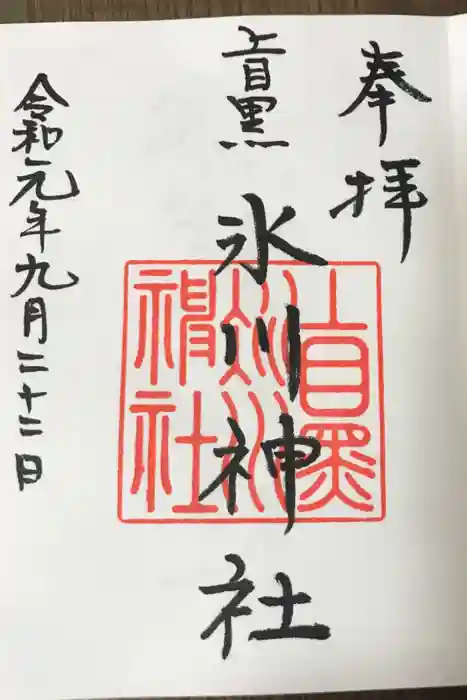 奉拝
上目黒
氷川神社
上目黒
氷川
神社
令和元年九月二十二日